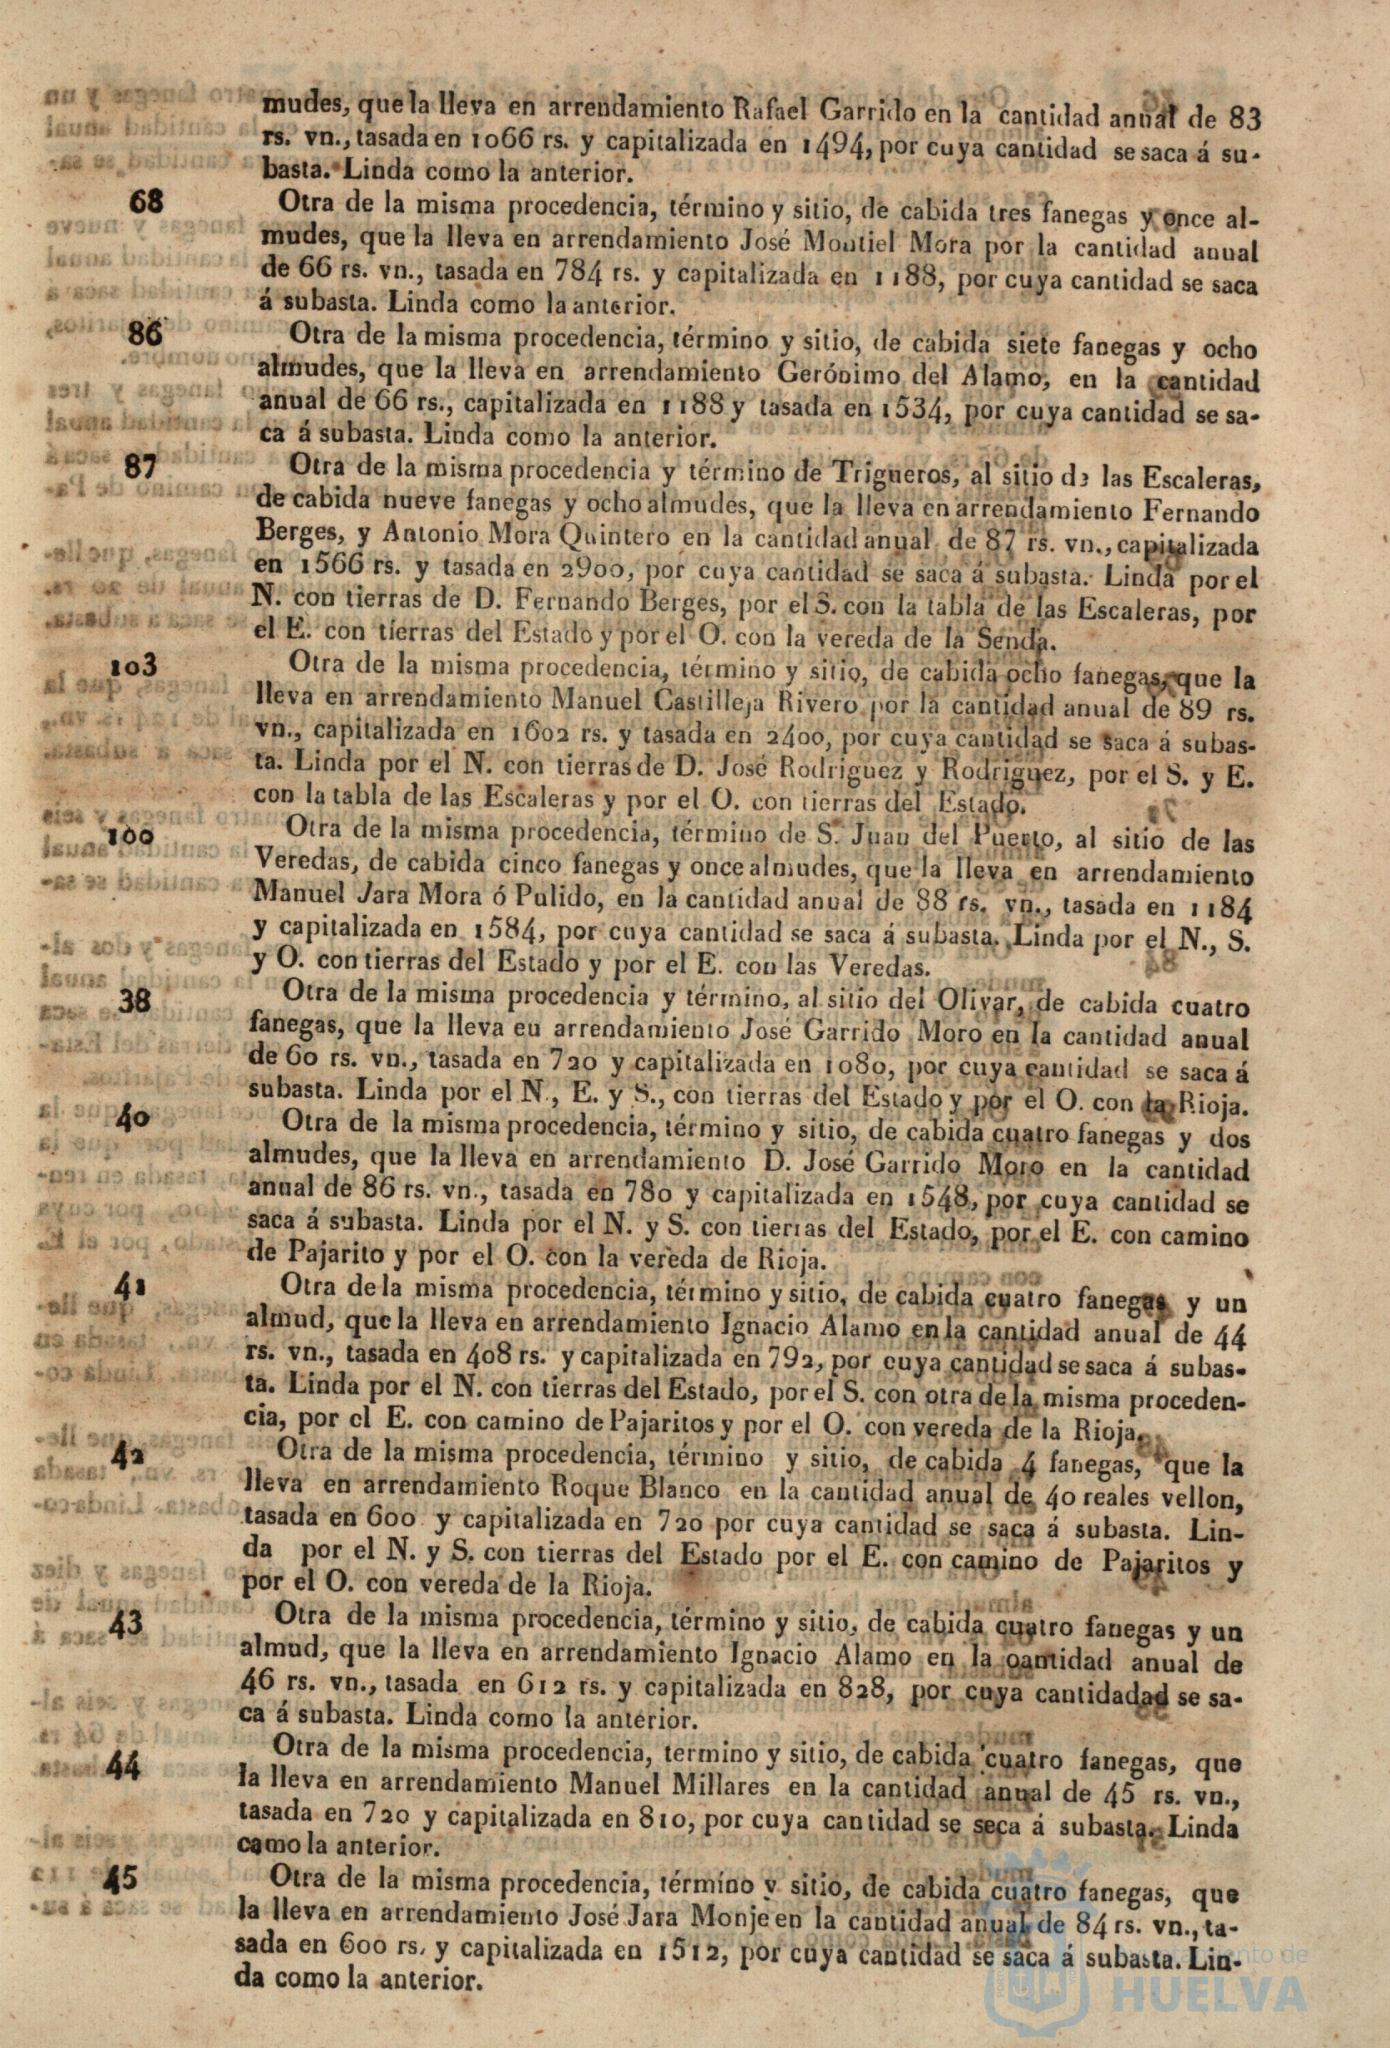 mudes, que la lleva en arrendamiento Rafael Garrido en la cantidad anual de 83
rs. vn., tasada en 1066 rs. y capitalizada en 1494, por cuya cantidad se saca á su-
basta. Linda como la anterior.
68 Otra de la misma procedencia, término y sitio, de cabida tres fanegas y once al-
mudes, que la lleva en arrendamiento José Montiel Mora por la cantidad anual
de 66 rs. vn., tasada en 784 rs. y capitalizada en 1188, por cuya cantidad se saca
á subasta. Linda como la anterior.
86 Otra de la misma procedencia, término y sitio, de cabida siete fanegas y ocho
almudes, que la lleva en arrendamiento Gerónimo del Alamo, en la cantidad
anual de 66 rs., capitalizada en 1188 y tasada en 1534, por cuya cantidad se sa-
ca á subasta. Linda como la anterior.
87 Otra de la misma procedencia y término de Trigueros, al sitio de las Escaleras,
de cabida nueve fanegas y ocho almudes, que la lleva en arrendamiento Fernando
Berges, y Antonio Mora Quintero en la cantidad anual de 87 rs. vn., capitalizada
en 1566 rs. y tasada en 2900, por cuya cantidad se saca á subasta. Linda por el
N. con tierras de D. Fernando Berges, por el S. con la tabla de las Escaleras, por
el E. con tierras del Estado y por el O. con la vereda de la Senda.
103 Otra de la misma procedencia, término y sitio, de cabida ocho fanegas, que la
lleva en arrendamiento Manuel Castilleja Rivero por la cantidad anual de 89 rs.
vn., capitalizada en 1602 rs. y tasada en 2400, por cuya cantidad se saca á subas-
ta. Linda por el N. con tierras de D. José Rodriguez y Rodriguez, por el S. y E.
con la tabla de las Escaleras y por el O. con tierras del Estado.
100 Otra de la misma procedencia, término de S. Juan del Puerto, al sitio de las
Veredas, de cabida cinco fanegas y once almudes, que la lleva en arrendamiento
Manuel Jara Mora ó Pulido, en la cantidad anual de 88 rs. vn., tasada en 1184
y capitalizada en 1584, por cuya cantidad se saca á subasta. Linda por el N., S.
y O. con tierras del Estado y por el E. con las Veredas.
38 Otra de la misma procedencia y término, al sitio del Olivar, de cabida cuatro
fanegas, que la lleva eu arrendamiento José Garrido Moro en la cantidad anual
de 60 rs. vn., tasada en 720 y capitalizada en 1080, por cuya cantidad se saca á
subasta. Linda por el N., E. y S., con tierras del Estado y por el O. con la Rioja.
40 Otra de la misma procedencia, término y sitio, de cabida cuatro fanegas y dos
almudes, que la lleva en arrendamiento D. José Garrido Moro en la cantidad
anual de 86 rs. vn., tasada en 780 y capitalizada en 1548, por cuya cantidad se
saca á subasta. Linda por el N. y S. con tierras del Estado, por el E. con camino
de Pajarito y por el O. con la vereda de Rioja.
41 Otra de la misma procedencia, término y sitio, de cabida cuatro fanegas y un
almud, que la lleva en arrendamiento Ignacio Alamo en la cantidad anual de 44
rs. vn., tasada en 408 rs. y capitalizada en 792, por cuya cantidad se saca á subas-
ta. Linda por el N. con tierras del Estado, por el S. con otra de la misma proceden-
cia, por el E. con camino de Pajaritos y por el O. con vereda de la Rioja.
42 Otra de la misma procedencia, término y sitio, de cabida 4 fanegas, que la
lleva en arrendamiento Roque Blanco en la cantidad anual de 40 reales vellon,
tasada en 600 y capitalizada en 720 por cuya cantidad se saca á subasta. Lin-
da por el N. y S. con tierras del Estado por el E. con camino de Pajaritos y
por el O. con vereda de la Rioja.
43 Otra de la misma procedencia, término y sitio, de cabida cuatro fanegas y un
almud, que la lleva en arrendamiento Ignacio Alamo en la oantidad anual de
46 rs. vn., tasada en 612 rs. y capitalizada en 828, por cuya cantidadad se sa-
ca á subasta. Linda como la anterior.
44 Otra de la misma procedencia, termino y sitio, de cabida cuatro fanegas, que
la lleva en arrendamiento Manuel Millares en la cantidad anual de 45 rs. vn.,
tasada en 720 y capitalizada en 810, por cuya cantidad se seca á subasta. Linda
como la anterior.
45 Otra de la misma procedencia, término y sitio, de cabida cuatro fanegas, que
la lleva en arrendamiento José Jara Monje en la cantidad anual de 84 rs. vn., ta-
sada en 600 rs. y capitalizada en 1512, por cuya cantidad se saca á subasta. Lin-
da como la anterior.
de
HUELVA